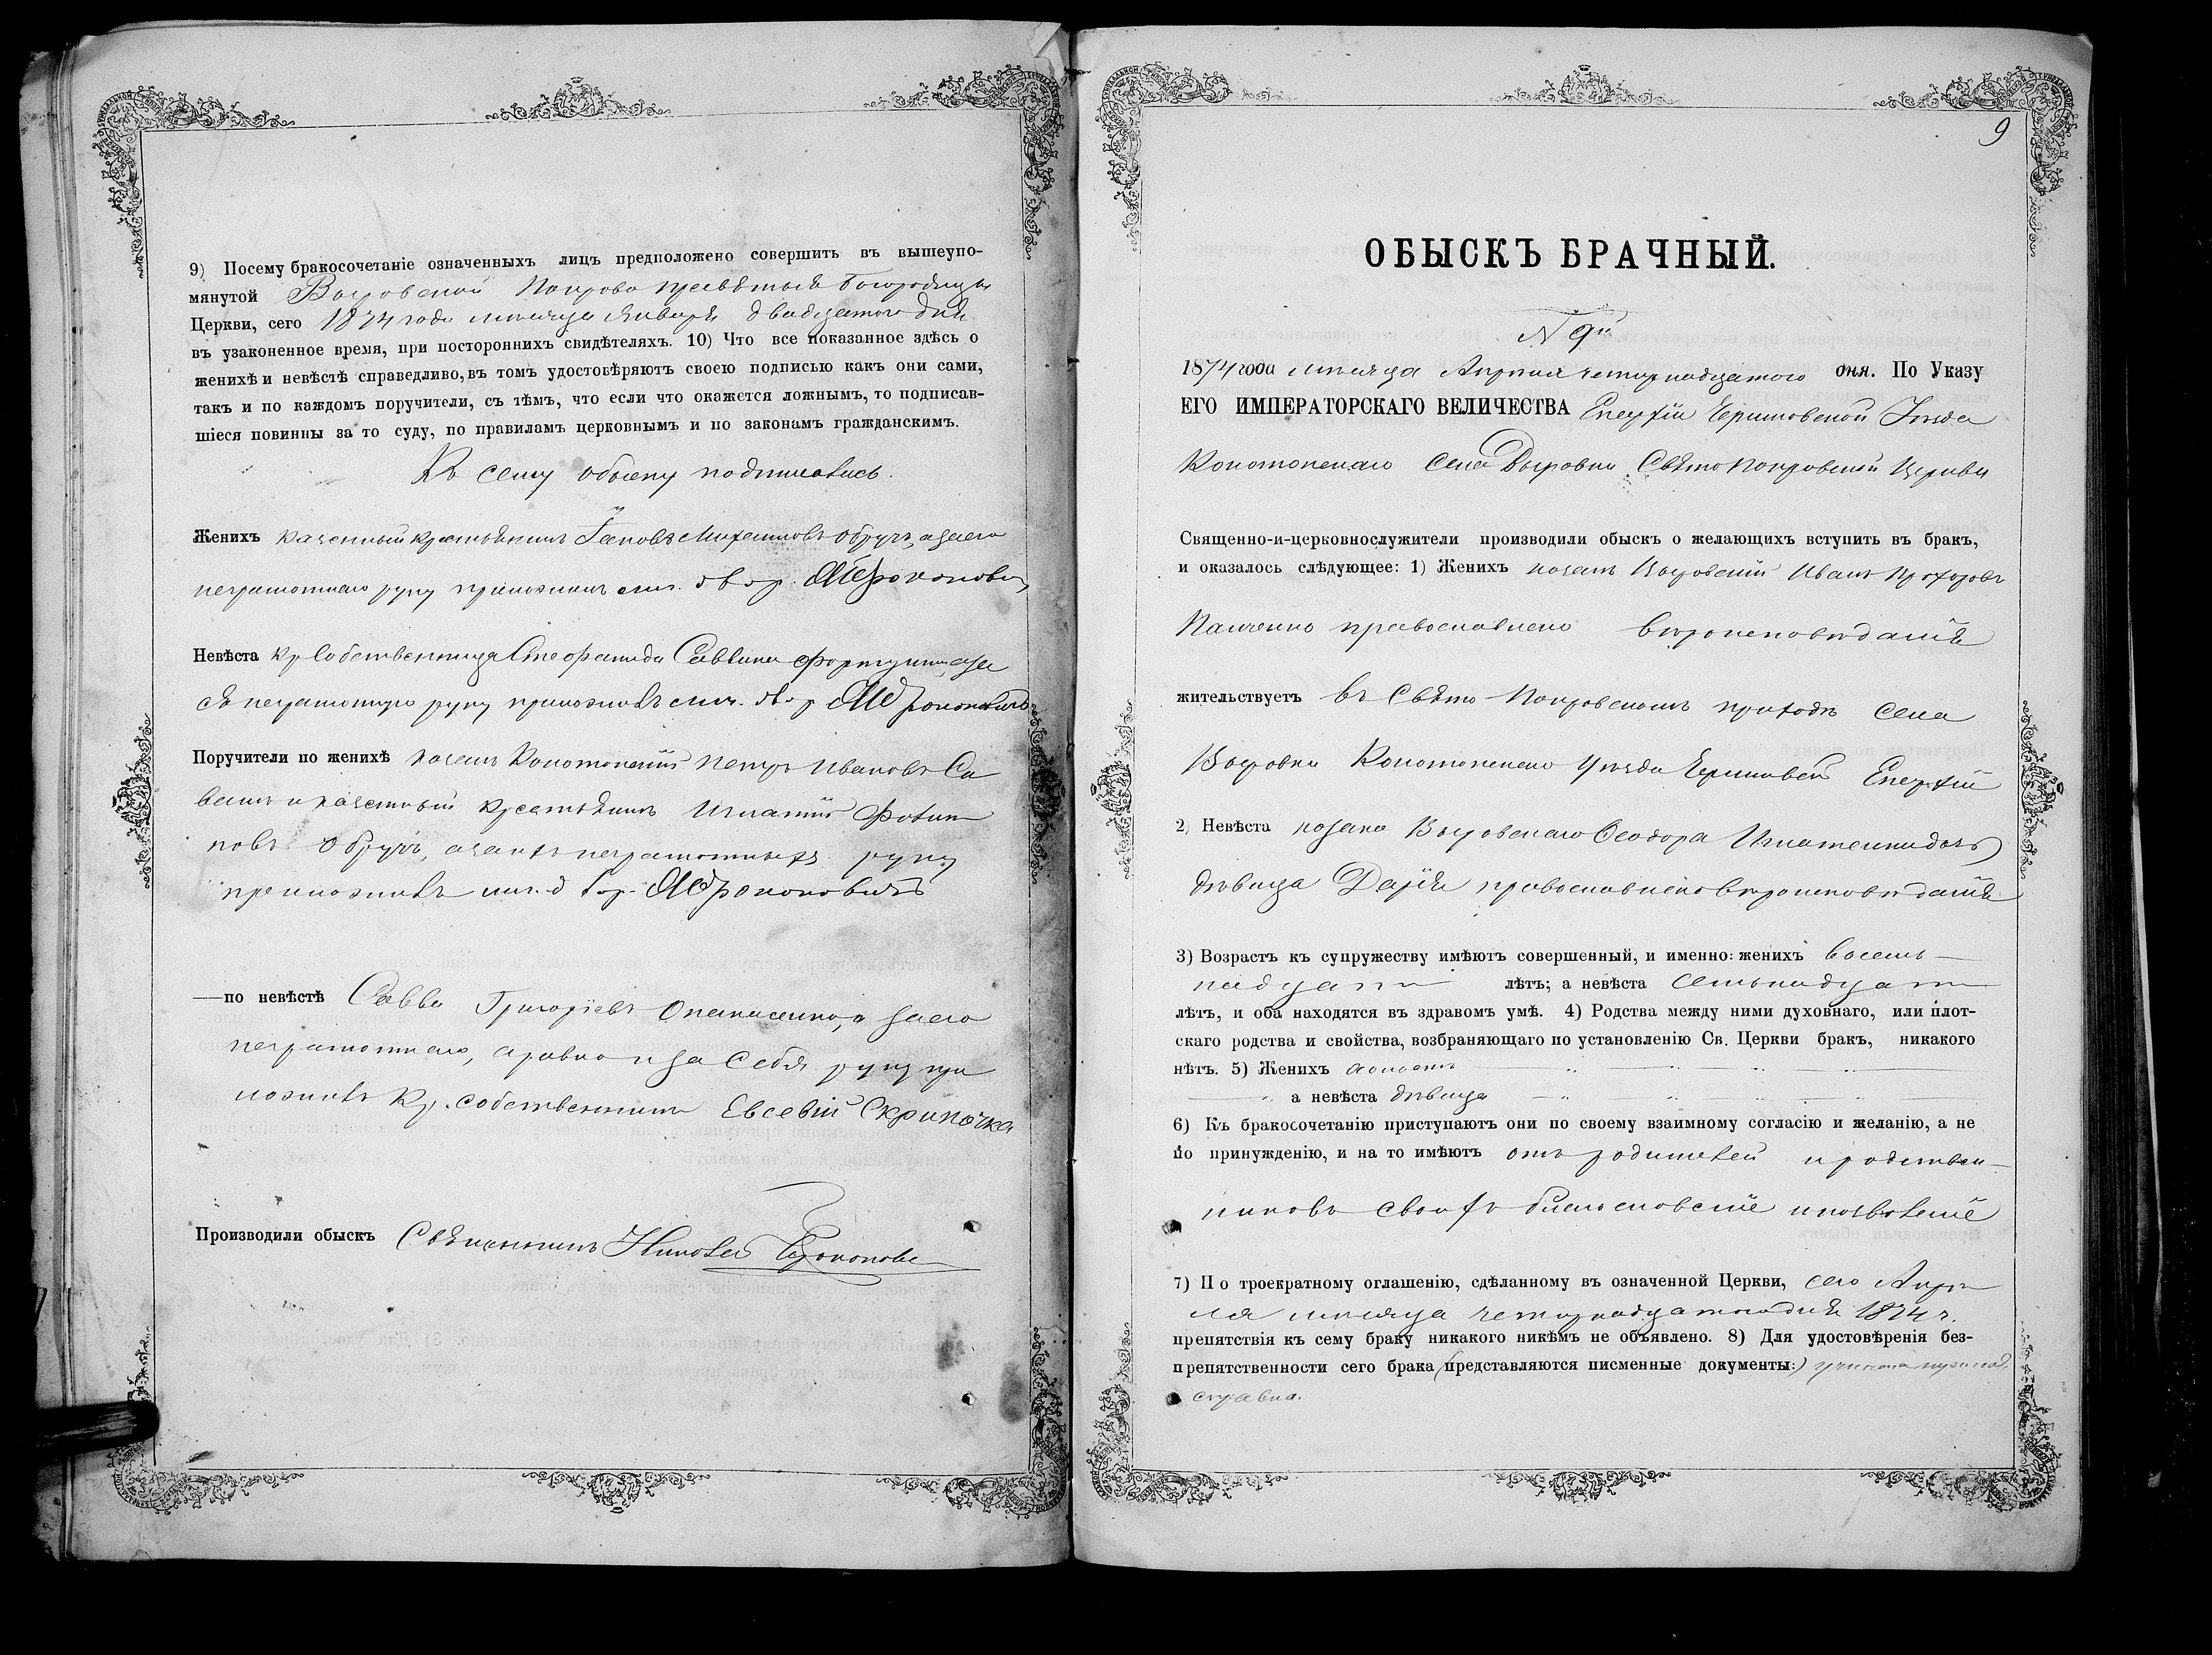 9) Посему бракосочетаніе означенныхъ лицъ предположено совершить въ вышеупо-
мянутой Выровской Покрово пресвятыя Богородицы
Церкви, сего 1874 года мѣсяца Января двадцатого дня
въ узаконенное время, при постороннихъ свидѣтеляхъ. 10) Что все показанное здѣсь о
женихѣ и невѣстѣ справедливо, въ томъ удостовѣряютъ своею подписью какъ они сами,
такъ и по каждомъ поручители, съ тѣмъ, что если что окажется ложнымъ, то подписав-
шіеся повинны за то суду, по правиламъ церковнымъ и по законамъ гражданскимъ.
Къ сему обыску подписались.
Женихъ казенный крестьянинъ Іаковъ Михаиловъ Обручъ, а за его
неграмотнаго руку приложилъ
Невѣста кр собственница Стефанида Саввина а за
ея неграмотную руку приложилъ
Поручители по женихѣ козакъ Конотопскій Петръ Ивановъ Са
вашъ и казенный крестьянинъ Игнатій Фотин
новъ Обручъ, а за ихъ неграмотныхъ руку
приложилъ
—по невѣстѣ Савва Григоріевъ Опанасенко, а за его
неграмотнаго, а равно и за себя руку при
ложилъ кр. собственникъ Евсевій Скрипочка
Производили обыскъ Священникъ Николай
9
ОБЫСКЪ БРАЧНЫЙ.
N 9й
1874 года мѣсяца Апреля четырнадцатого дня. По Указу
ЕГО ИМПЕРАТОРСКАГО ВЕЛИЧЕСТВА Епархіи Черниговской Уѣзда
Конотопскаго села Выровки Свято Покровской Церкви
Священно-и-церковнослужители производили обыскъ о желающихъ вступить въ бракъ,
и оказалось слѣдующее: 1) Женихъ козакъ Выровскій Иванъ Прохоровъ
Панченко православнаго вѣроисповѣданія
жительствуетъ въ Свято-Покровскомъ приходѣ села
Выровки Конотопскаго уѣзда Чернигов Епархіи
2) Невѣста козака Выровскаго Феодора Игнатенка дочь
дѣвица Дарія православнаго вѣроисповѣданія
3) Возрастъ къ супружеству имѣютъ совершенный, и именно: женихъ восемь—
надцати лѣтъ; а невѣста семьнадцати
лѣтъ, и оба находятся въ здравомъ умѣ. 4) Родства между ними духовнаго, или плот-
скаго родства и свойства, возбраняющаго по установленію Св. Церкви бракъ, никакого
нѣтъ. 5) Женихъ холостъ
а невѣста дѣвица
6) Къ бракосочетанію приступаютъ они по своему взаимному согласію и желанію, а не
по принужденію, и на то имѣютъ отъ родителей и родствен—
никовъ своихъ благословеніе и позволеніе
7) По троекратному оглашенію, сдѣланному въ означенной Церкви, сего Апре
ля мѣсяца четырнадцатого дня 1874 г.
препятствія къ сему браку никакого никѣмъ не объявлено. 8) Для удостовѣренія без-
препятственности сего брака (представляются писменные документы:) учинена
справка.